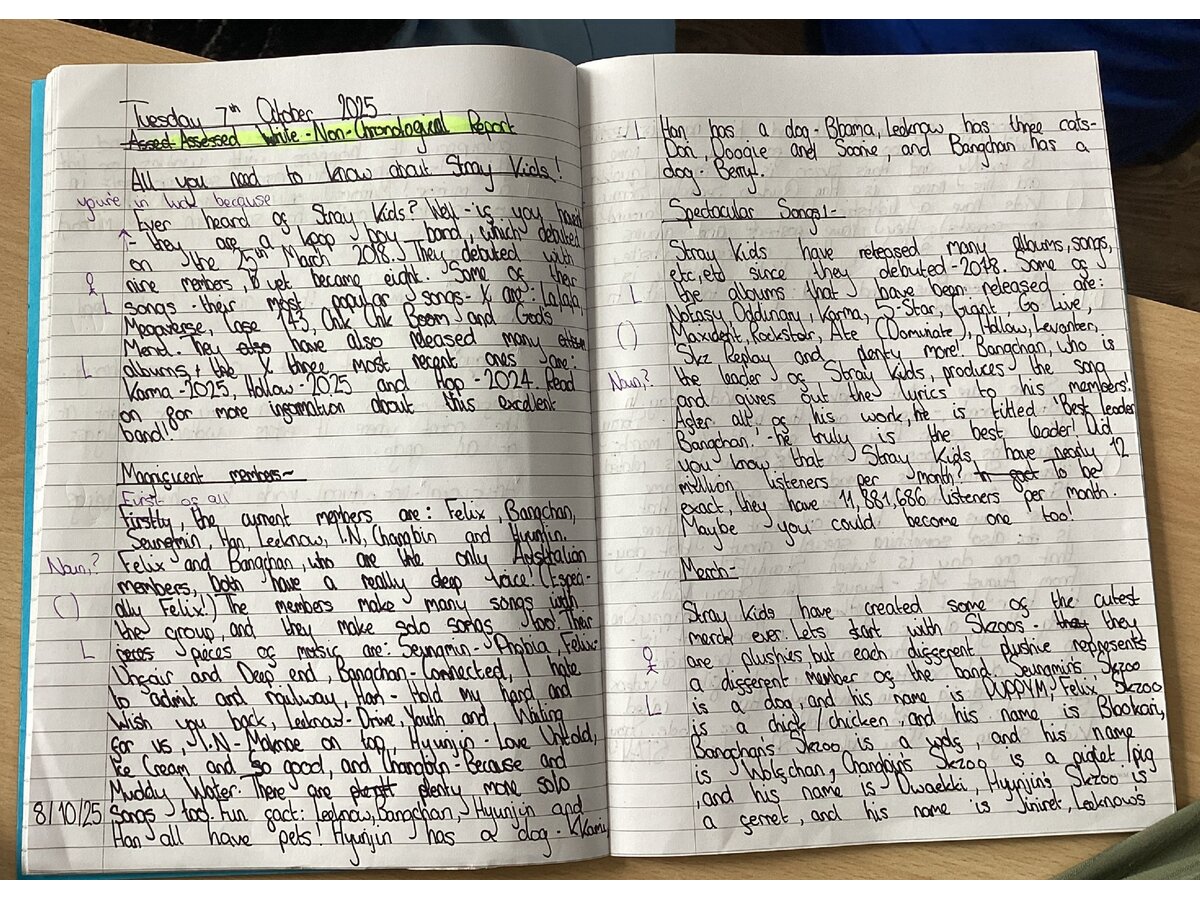 Tuesday 7th October 2025
Assed Assessed Write - Non-Chronological Report
All you need to know about Stray Kids!
you're in luck because
Ever heard of Stray Kids? Well - if you haved
- they are a kpop boy band, which debuted
on the 25th March 2018. They debuted with
nine members, yet became eight. Some of their
songs - their most popular songs - are: Lalala,
Megaverse, Case 143, Chk Chk Boom and God's
Menu. They also have also released many
albums, the three most recent ones are:
Karma - 2025, Hollow - 2025 and Hop - 2024. Read
on for more information about this excellent
band!
Magnificent members~
First of all
Firstly, the current members are: Felix, Bangchan,
Seungmin, Han, Leeknow, I.N, Changbin and Hyunjin.
Noun,?
Felix and Bangchan, who are the only Australian
members, both have a really deep voice! (Especi-
()
ally Felix!) The members make many songs with
the group, and they make solo songs too! Their
L
peices pieces of motsic are: Seungmin - Phobia, Felix-
Unfair and Deep end, Bangchan - Connected, I hate
to admit and railway, Han - Hold my hand and
Wish you back, Leeknow - Drive, Youth and, Waiting
for us, I.N - Maknae on top, Hyunjin - Love Untold,
Ice Cream and So good, and Changbin - Because and
Muddy Water. There are plenty more solo
8/10/25 Songs too! Fun fact: Leeknow, Bangchan, Hyunjin and
Han all have pets! Hyunjin has a dog - Kkami,
L
Han has a dog - Bbama, Leeknow has three cats-
Dori, Doogie and Soonie, and Bangchan has a
dog - Berry!
Spectacular Songs!-
Stray Kids have released many albums, songs,
etc, etd since they debuted - 2018. Some of
L
the albums that have been released are:
Noeasy, Oddinary, Karma, 5-Star, Giant, Go Live,
()
Maxident, Rockstar, Ate (Dominate), Hollow, Levanter,
Skz Replay and plenty more! Bangchan, who is
Noun,?
the leader of Stray Kids, produces the song
and gives out the lyrics to his members!
After all of his work, he is titled 'Best leader
Bangchan.' - he truly is the best leader! Did
you know that Stray Kids have nearly 12
million listeners per month? In fact To be
exact, they have 11,881,686 listeners per month.
Maybe you could become one too!
Merch-
Stray Kids have created some of the cutest
march ever. Lets start with Skzoos - that they
are plushies, but each different plushie represents
a different member of the band. Seungmin's Skzoo
L
is a dog, and his name is PUPPYM, Felix Skzoo
is a chick/chicken, and his name is Bbokari,
Bangchan's Skzoo is a wolf, and his name
is Wolfchan, Changbin's Skzoo is a piglet/pig
,and his name is Dwaekki, Hyunjin's Skzoo is
a ferret, and his name is Jiniret, Leeknow's